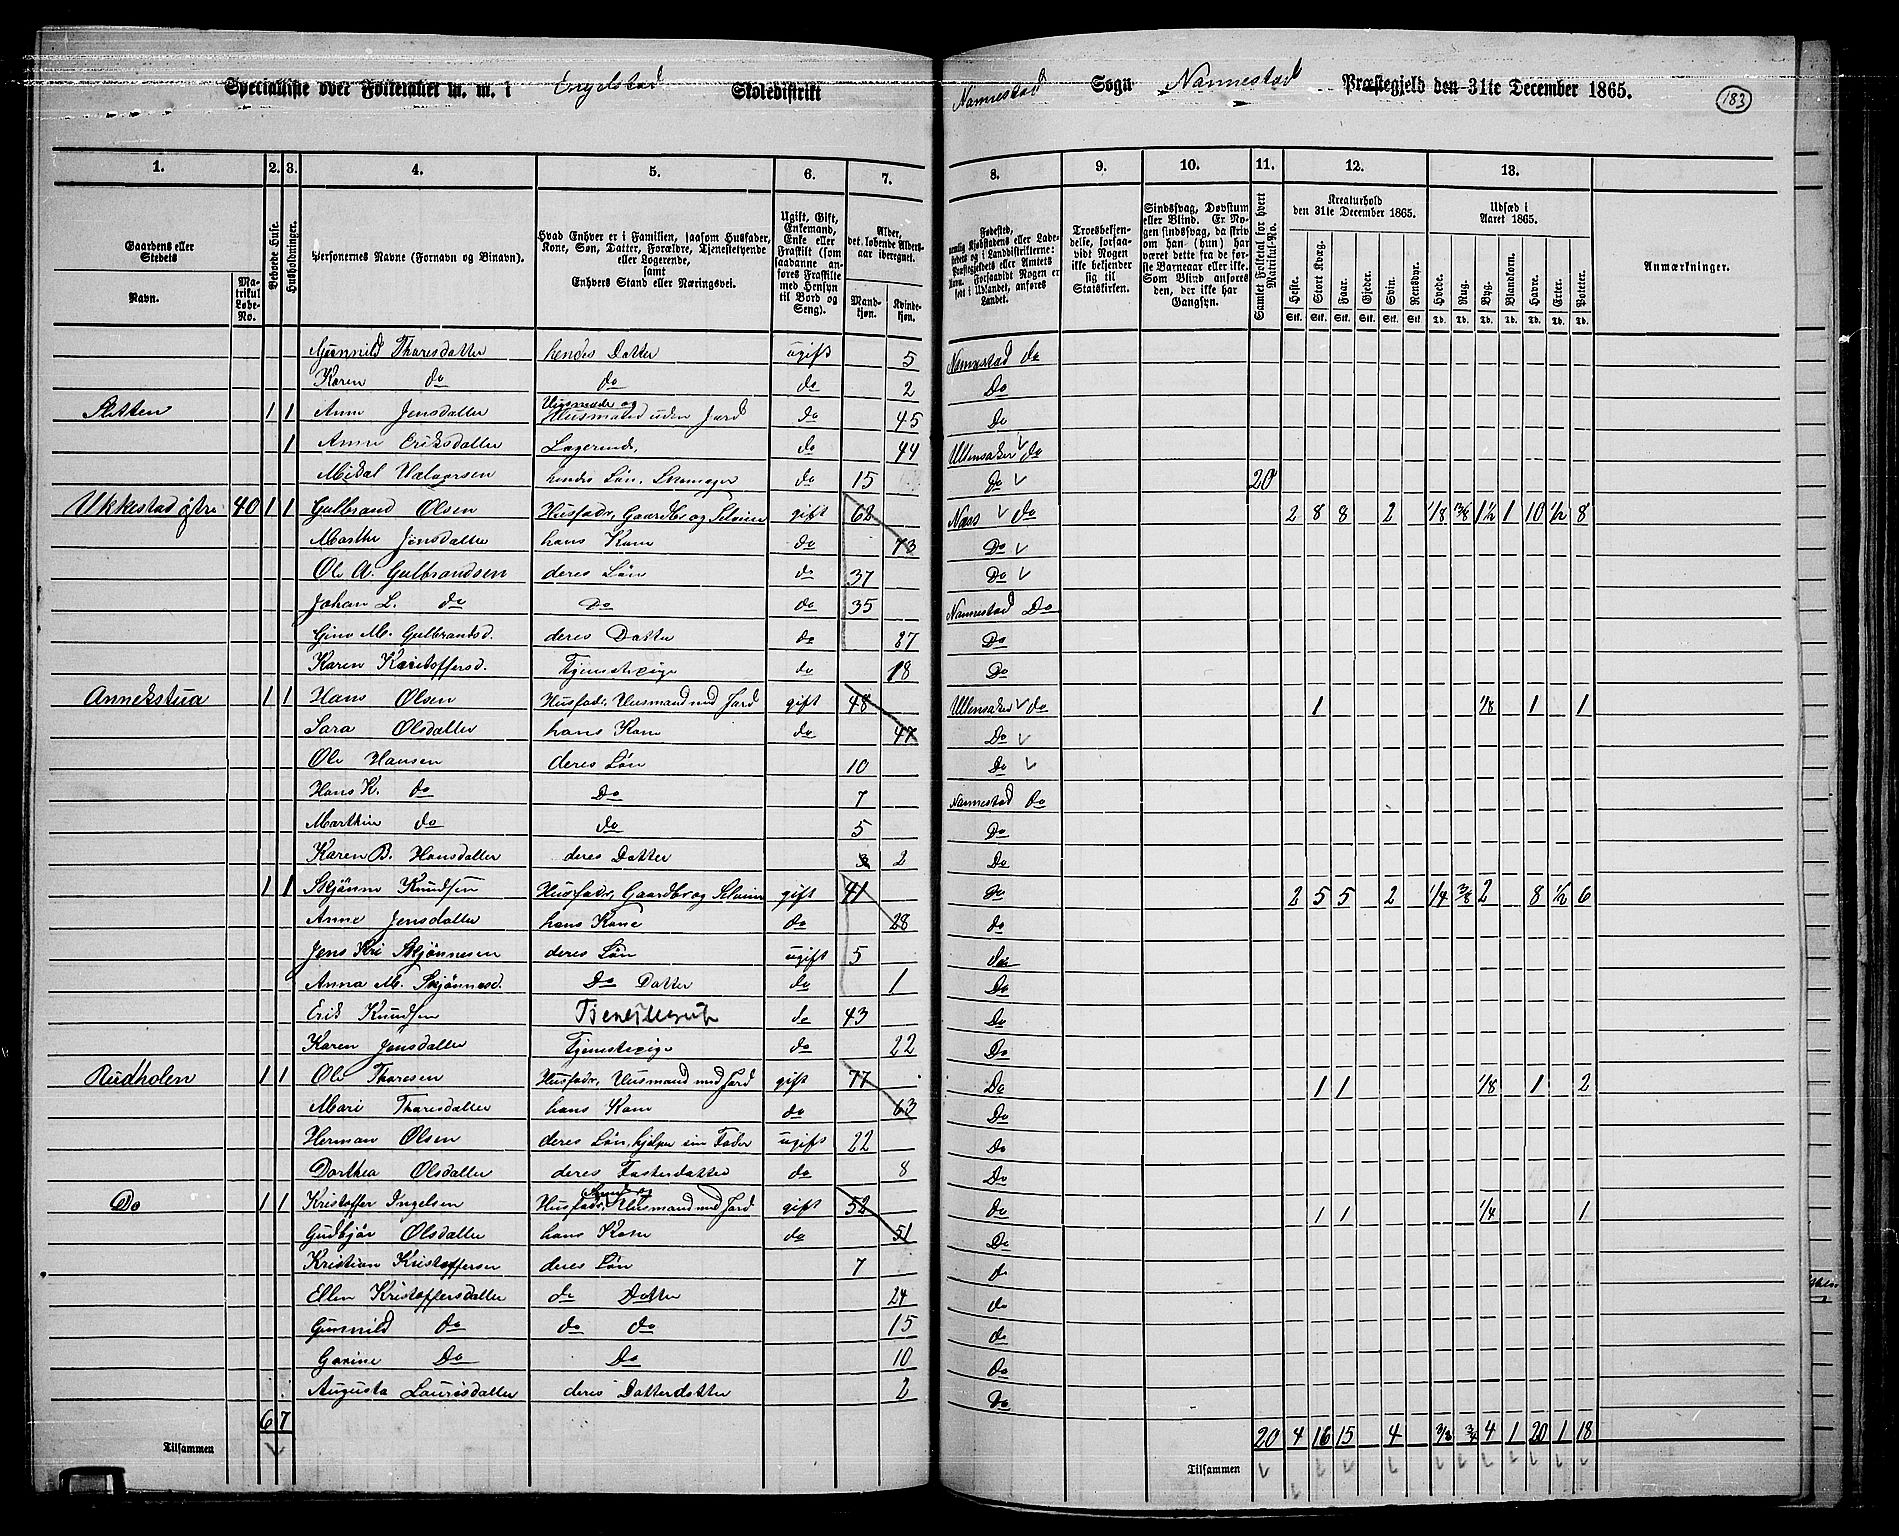 Specialliste over Folketallet m. m. i Engelstad Skoledistrikt Nannestad Sogn Nannestad Præstegjeld den 31te December 1865.
183
1. 2. 3. 4. 5. 6. 7. 8. 9. 10. 11. 12. 13.
Gaardens eller Stedets
Navn.
Matrikul Løbe-No.
Beboede Huse.
Husholdninger.
Personernes Navne (Fornavn og Binavn).
Hvad Enhver er i Familien, saasom Husfader, Kone, Søn, Datter, Forældre, Tjenestetyende eller Logerende, samt Enhvers Stand eller Næringsvei.
Ugift, Gift, Enkemand, Enke eller Fraskilt (som saadanne anføres Fraskilte med Hensyn til Bord og Seng).
Alder, det løbende Aldersaar iberegnet.
Mandkjøn.
Kvindekjøn.
Fødested,
Troesbekjendelse, forsaavidt Nogen ikke bekjender sig til Statskirken.
Sindssvag, Døvstum eller Blind. Er Nogen sindssvag, da skrives om han (hun) har været dette fra de første Barneaar eller ikke. Som Blind anføres den, der ikke har Gangsyn.
Samlet Folketal for hvert Matrikul-No.
Kreaturhold den 31te December 1865.
Heste. Stort Kvæg. Faar. Gjeder. Svin. Rensdyr.
Udsæd i Aaret 1865.
Hvede. Rug. Byg. Blandkorn. Havre. Erter. Poteter.
Anmærkninger.
Stk. Stk. Stk. Stk. Stk. Stk. Td. Td. Td. Td. Td. Td. Td.
Gunnild Tharesdatter hendes Datter ugift 5 Nannestad do
Karen do do do 2 Do
Sletten 1 1 Anne Jensdatter Husmand uden Jord do 45 Do
1 Anne Eriksdatter Logerende, do 44 Ullensaker do
Mikal hendes Søn, Skomager do 15 Do 20
Ukkestad østre 40 1 1 Gulbrand Olsen Husfader, Gaardbr og Selveier gift 62 Næs do 2 8 8 2 1/8 3/8 1 1/2 1 10 1/2 8
Marthe Jonsdatter hans Kone do 73 Do
Ole A. Gulbrandsen deres Søn do 37 Do
Johan L. do Do do 35 Nannestad Do
Gina M. Gulbrandsd. deres Datter do 27 Do
Karen Kristoffersd. Tjenestepige do 18 Do
Annekstua 1 1 Hans Olsen Husfader, Husmand med Jord gift 48 Ullensaker do 1 1/8 1 1
Sara Olsdatter hans Kone do 47 Do
Ole Hansen deres Søn 10 Do
Hans K. do Do 7 Nannestad do
Marthin do do 5 Do
Karen B. Hansdatter deres Datter 2 Do
1 1 Skjønne Knudsen Husfader, Gaardbr og Selveier gift 41 Do 2 5 5 2 1/4 3/8 2 8 1/2 6
Anne Jensdatter hans Kone do 28 do
Jens Kri Skjønnesen deres Søn ugift 5 do
Anna M. Skjønnesd. Do Datter do 1 Do
Erik Knudsen do 43 Do
Karen Jensdatter Tjenestepige do 22 Do
Rudholen 1 1 Ole Tharesen Husfader, Husmand med Jord gift 77 Do 1 1 1/8 1 2
Mari Tharesdatter hans Kone do 63 Do
Herman Olsen deres Søn, hjelper sin Fader ugift 22 Do
Dorthea Olsdatter deres Fosterdatter do 8 Do
Do 1 1 Kristoffer Ingelsen Husfader, Husmand med Jord gift 52 do 1 1 1/4 1
Gudbjør Olsdatter hans Kone do 51 Do
Kristian Kristoffersen deres Søn 7 do
Ellen Kristoffersdatter do Datter 24 do
Gunnild do do do 15 do
Gorine Do Do 10 Do
Augusta Laurisdatter deres Datterdatter 2 Do
6 7
Tilsammen
Tilsammen 20 4 16 15 4 3/8 3/4 4 1 20 1 18